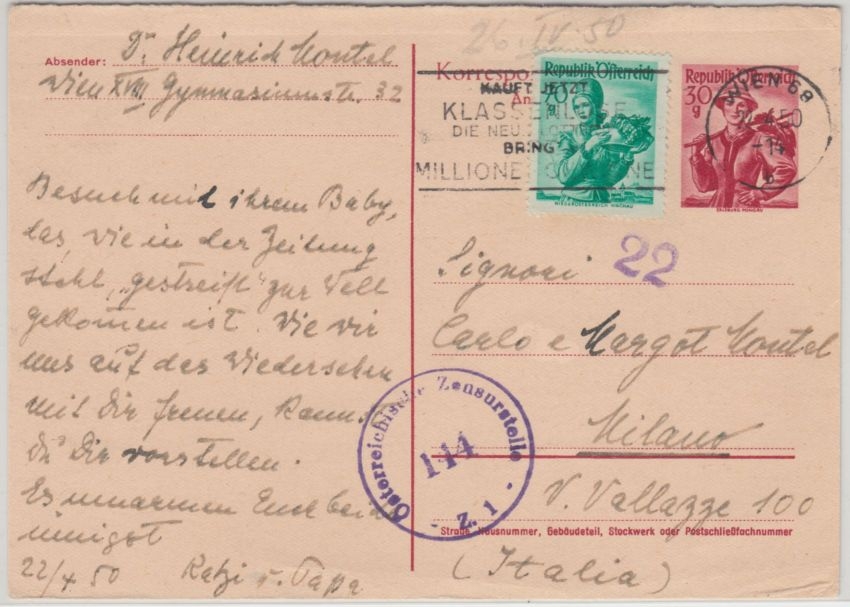 26. IV. 50
Absender: Dr Heinrich Montel
Wien XVIII Gymnasiumstr. 32
Besuch mit ihrem Baby,
das, wie in der Zeitung
steht, "gestreift" zur Welt
gekommen ist. Wie wir
uns auf das Wiedersehen
mit Dir freuen, kannst
Du Dir vorstellen.
Es umarmen Euch beide
innigst
22/4 50 Katzi u. Papa
Korrespo
An
Republik Österreich
70g
NIEDERÖSTERREICH WACHAU
Republik Österreich
30g
SALZBURG PONGAU
WIEN 68
4.50
KAUFT JETZT
KLASSENLOSE
DIE NEU
BRING
MILLIONE
NE
22
Signori
Carlo e Margot Montel
Milano
V. Vallazze 100
Straße, Hausnummer, Gebäudeteil, Stockwerk oder Postschließfachnummer
(Italia)
Österreichische Zensurstelle
144
- Z. 1 -